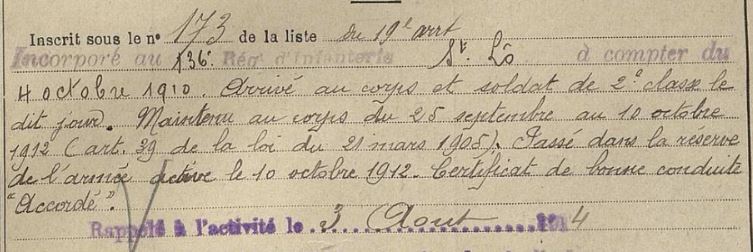 Inscrit sous le nº 173 de la liste du 19e arrt
Incorporé au 136e Rég. d'Infanterie St Lô à compter du
4 octobre 1910. Arrivé au corps et soldat de 2e classe le
dit jour. Maintenu au corps du 25 septembre au 10 octobre
1912 (art. 39 de la loi du 21 mars 1905). Passé dans la réserve
de l'armée active le 10 octobre 1912. Certificat de bonne conduite
"Accordé".
Rappelé à l'activité le 3 Aout 1914